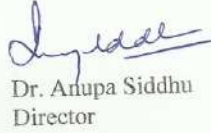 Dr. Anupa Siddhu
Director